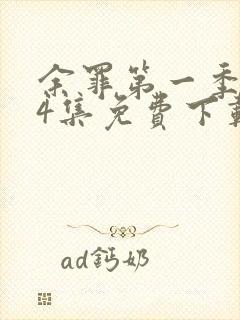 余罪第一季
4集免費下載
ad鈣奶